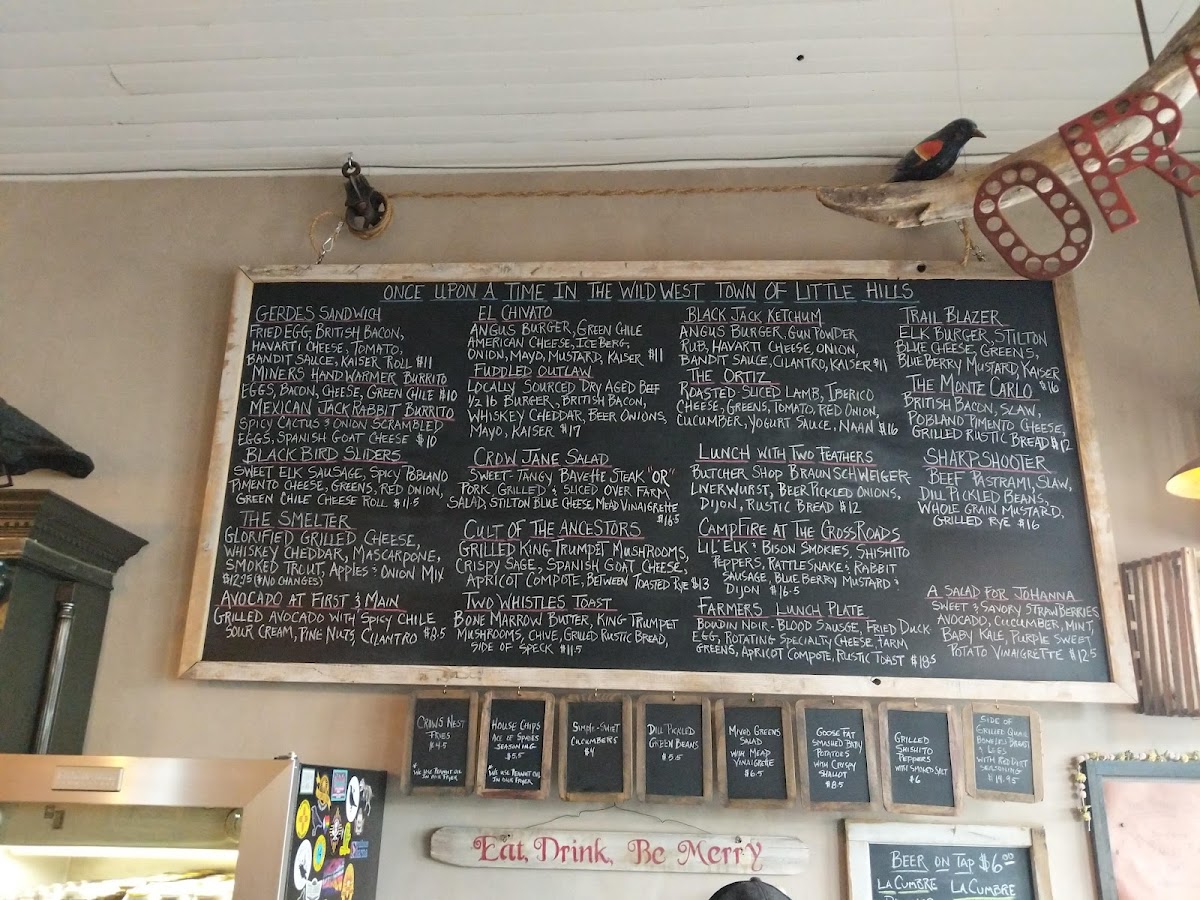 OR
ONCE UPON A TIME IN THE WILD WEST TOWN OF LITTLE HILLS
GERDES SANDWICH
FRIED EGG, BRITISH BACON,
HAVARTI CHEESE, TOMATO,
BANDIT SAUCE, KAISER ROLL $11
MINERS HANDWARMER BURRITO
EGGS, BACON, CHEESE, GREEN CHILE $10
MEXICAN JACK RABBIT BURRITO
SPICY CACTUS & ONION SCRAMBLED
EGGS, SPANISH GOAT CHEESE $10
BLACK BIRD SLIDERS
SWEET ELK SAUSAGE, SPICY POBLANO
PIMENTO CHEESE, GREENS, RED ONION,
GREEN CHILE CHEESE ROLL $11.5
THE SMELTER
GLORIFIED GRILLED CHEESE,
WHISKEY CHEDDAR, MASCARPONE,
SMOKED TROUT, APPLES & ONION MIX
(NO CHANGES)
AVOCADO AT FIRST & MAIN
GRILLED AVOCADO WITH SPICY CHILE
SOUR CREAM, PINE NUTS, CILANTRO
EL CHIVATO
ANGUS BURGER, GREEN CHILE
AMERICAN CHEESE, ICEBERG,
ONION, MAYO, MUSTARD, KAISER $11
FUDDLED OUTLAW
LOCALLY SOURCED DRY AGED BEEF
1/2 lb BURGER, BRITISH BACON,
WHISKEY CHEDDAR, BEER ONIONS,
MAYO, KAISER $17
CROW JANE SALAD
SWEET-TANGY BAVETTE STEAK "OR"
PORK, GRILLED & SLICED OVER FARM
SALAD, STILTON BLUE CHEESE, MEAD VINAIGRETTE
$16.5
CULT OF THE ANCESTORS
GRILLED KING TRUMPET MUSHROOMS,
CRISPY SAGE, SPANISH GOAT CHEESE,
APRICOT COMPOTE, BETWEEN TOASTED RYE $13
TWO WHISTLES TOAST
BONE MARROW BUTTER, KING TRUMPET
MUSHROOMS, CHIVE, GRILLED RUSTIC BREAD,
SIDE OF SPECK $11.5
BLACK JACK KETCHUM
ANGUS BURGER, GUN POWDER
RUB, HAVARTI CHEESE, ONION,
BANDIT SAUCE, CILANTRO, KAISER $11
THE ORTIZ
ROASTED SLICED LAMB, IBERICO
CHEESE, GREENS, TOMATO, RED ONION,
CUCUMBER, YOGURT SAUCE, NAAN $16
LUNCH WITH TWO FEATHERS
BUTCHER SHOP BRAUNSCHWEIGER-
LIVERWURST, BEER PICKLED ONIONS,
DIJON, RUSTIC BREAD $12
CAMPFIRE AT THE CROSSROADS
LIL' ELK & BISON SMOKIES, SHISHITO
PEPPERS, RATTLESNAKE & RABBIT
SAUSAGE, BLUEBERRY MUSTARD &
DIJON $16.5
FARMERS LUNCH PLATE
BOUDIN NOIR-BLOOD SAUSGE, FRIED DUCK
EGG, ROTATING SPECIALTY CHEESE, FARM
GREENS, APRICOT COMPOTE, RUSTIC TOAST $18.5
TRAIL BLAZER
ELK BURGER, STILTON
BLUE CHEESE, GREENS,
BLUEBERRY MUSTARD, KAISER
$16
THE MONTE CARLO
BRITISH BACON, SLAW,
POBLANO PIMENTO CHEESE,
GRILLED RUSTIC BREAD $12
SHARPSHOOTER
BEEF PASTRAMI, SLAW,
DILL PICKLED BEANS,
WHOLE GRAIN MUSTARD,
GRILLED RYE $16
A SALAD FOR JOHANNA
SWEET & SAVORY STRAWBERRIES
AVOCADO, CUCUMBER, MINT,
BABY KALE, PURPLE SWEET
POTATO VINAIGRETTE $12.5
CROWS NEST
FRIES
$4.5
*WE USE PEANUT OIL
IN OUR FRYER
HOUSE CHIPS
ACE OF SPADES
SEASONING
$5.5
*WE USE PEANUT OIL
IN OUR FRYER
SIMPLE-SWEET
CUCUMBERS
$4
DILL PICKLED
GREEN BEANS
$5.5
MIXED GREENS
SALAD
WITH MEAD
VINAIGRETTE
$6.5
GOOSE FAT
SMASHED BABY
POTATOES
WITH CRISPY
SHALLOT
$8.5
GRILLED
SHISHITO
PEPPERS
WITH SMOKED SALT
$6
SIDE OF
GRILLED QUAIL
BONELESS BREAST
& LEGS
WITH RED DIRT
SEASONING
$14.95
Eat, Drink, Be Merry
BEER ON TAP $6.00
LA CUMBRE LA CUMBRE